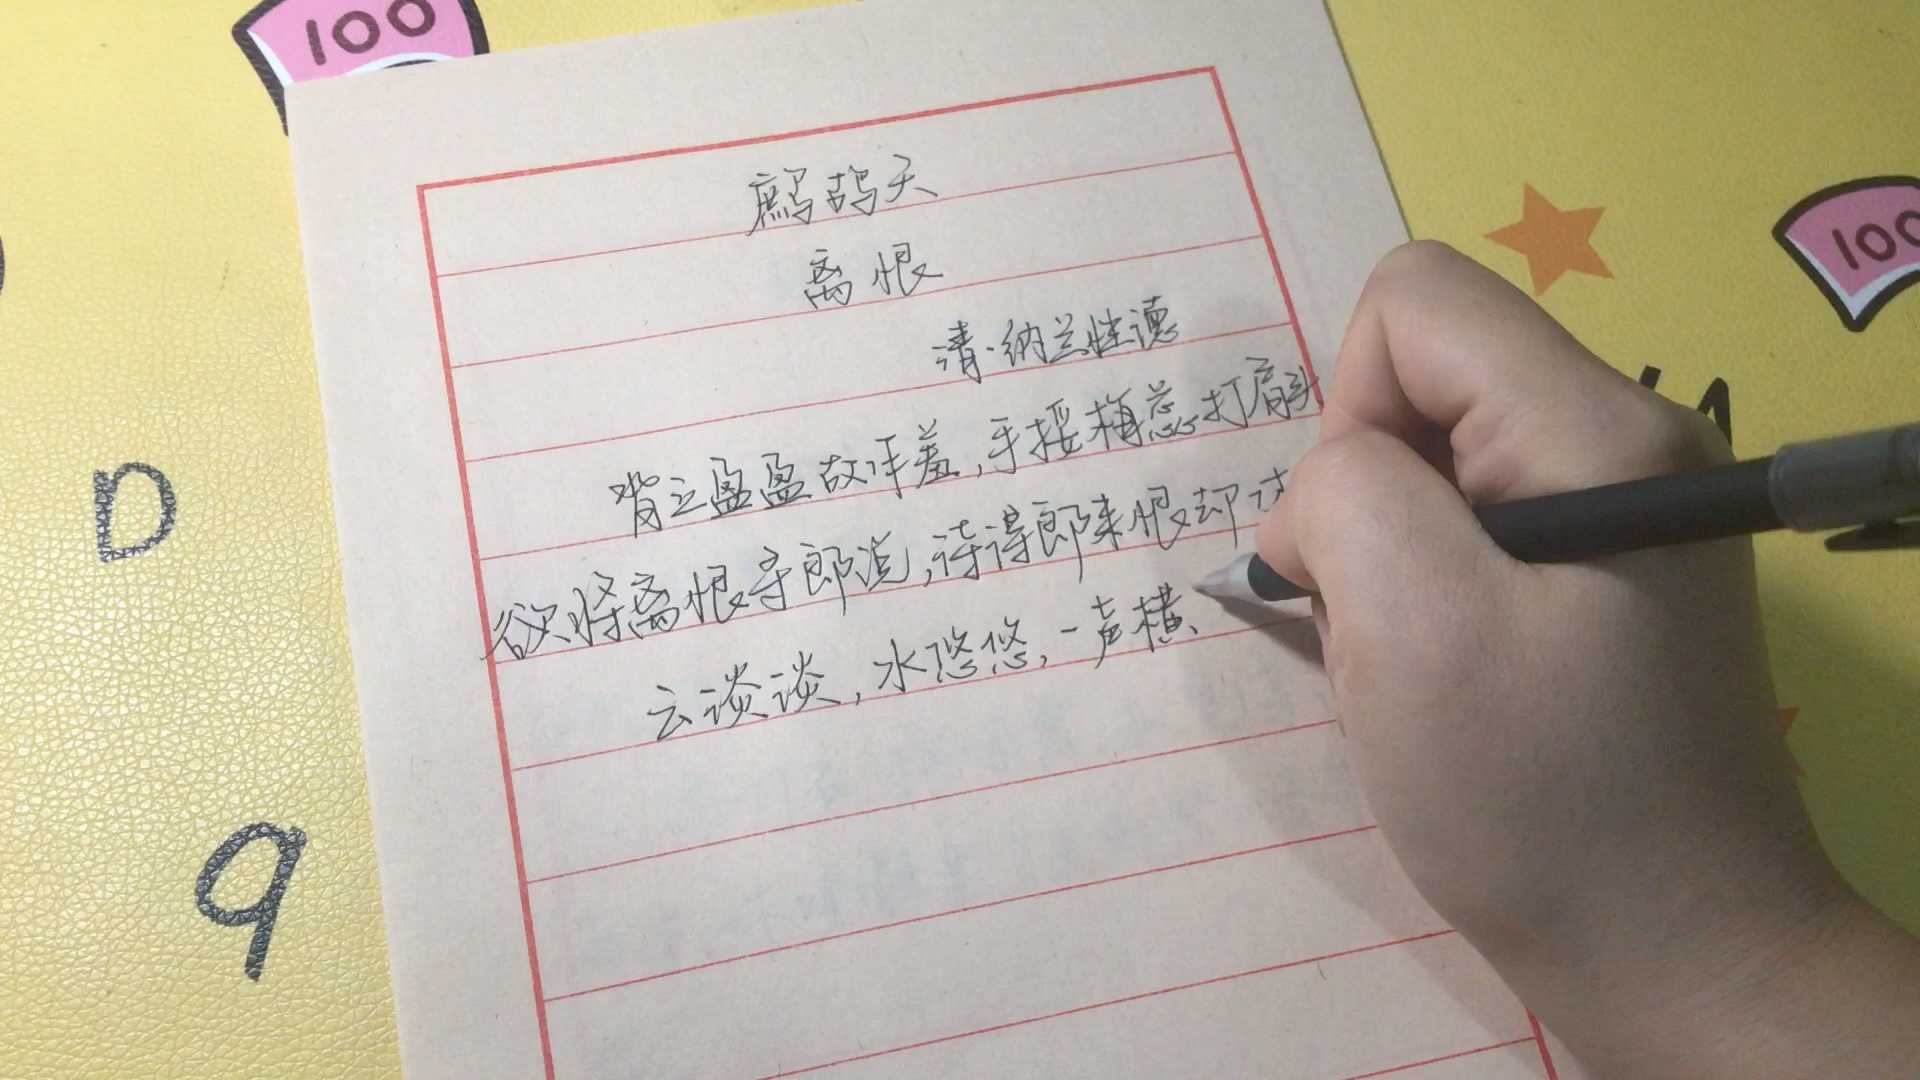 100
100
鹧鸪天
离恨
清·纳兰性德
背立盈盈故作羞,手挼梅蕊打肩头
欲将离恨寻郎说,待得郎来恨却
云谈谈,水悠悠,一声横
D
9